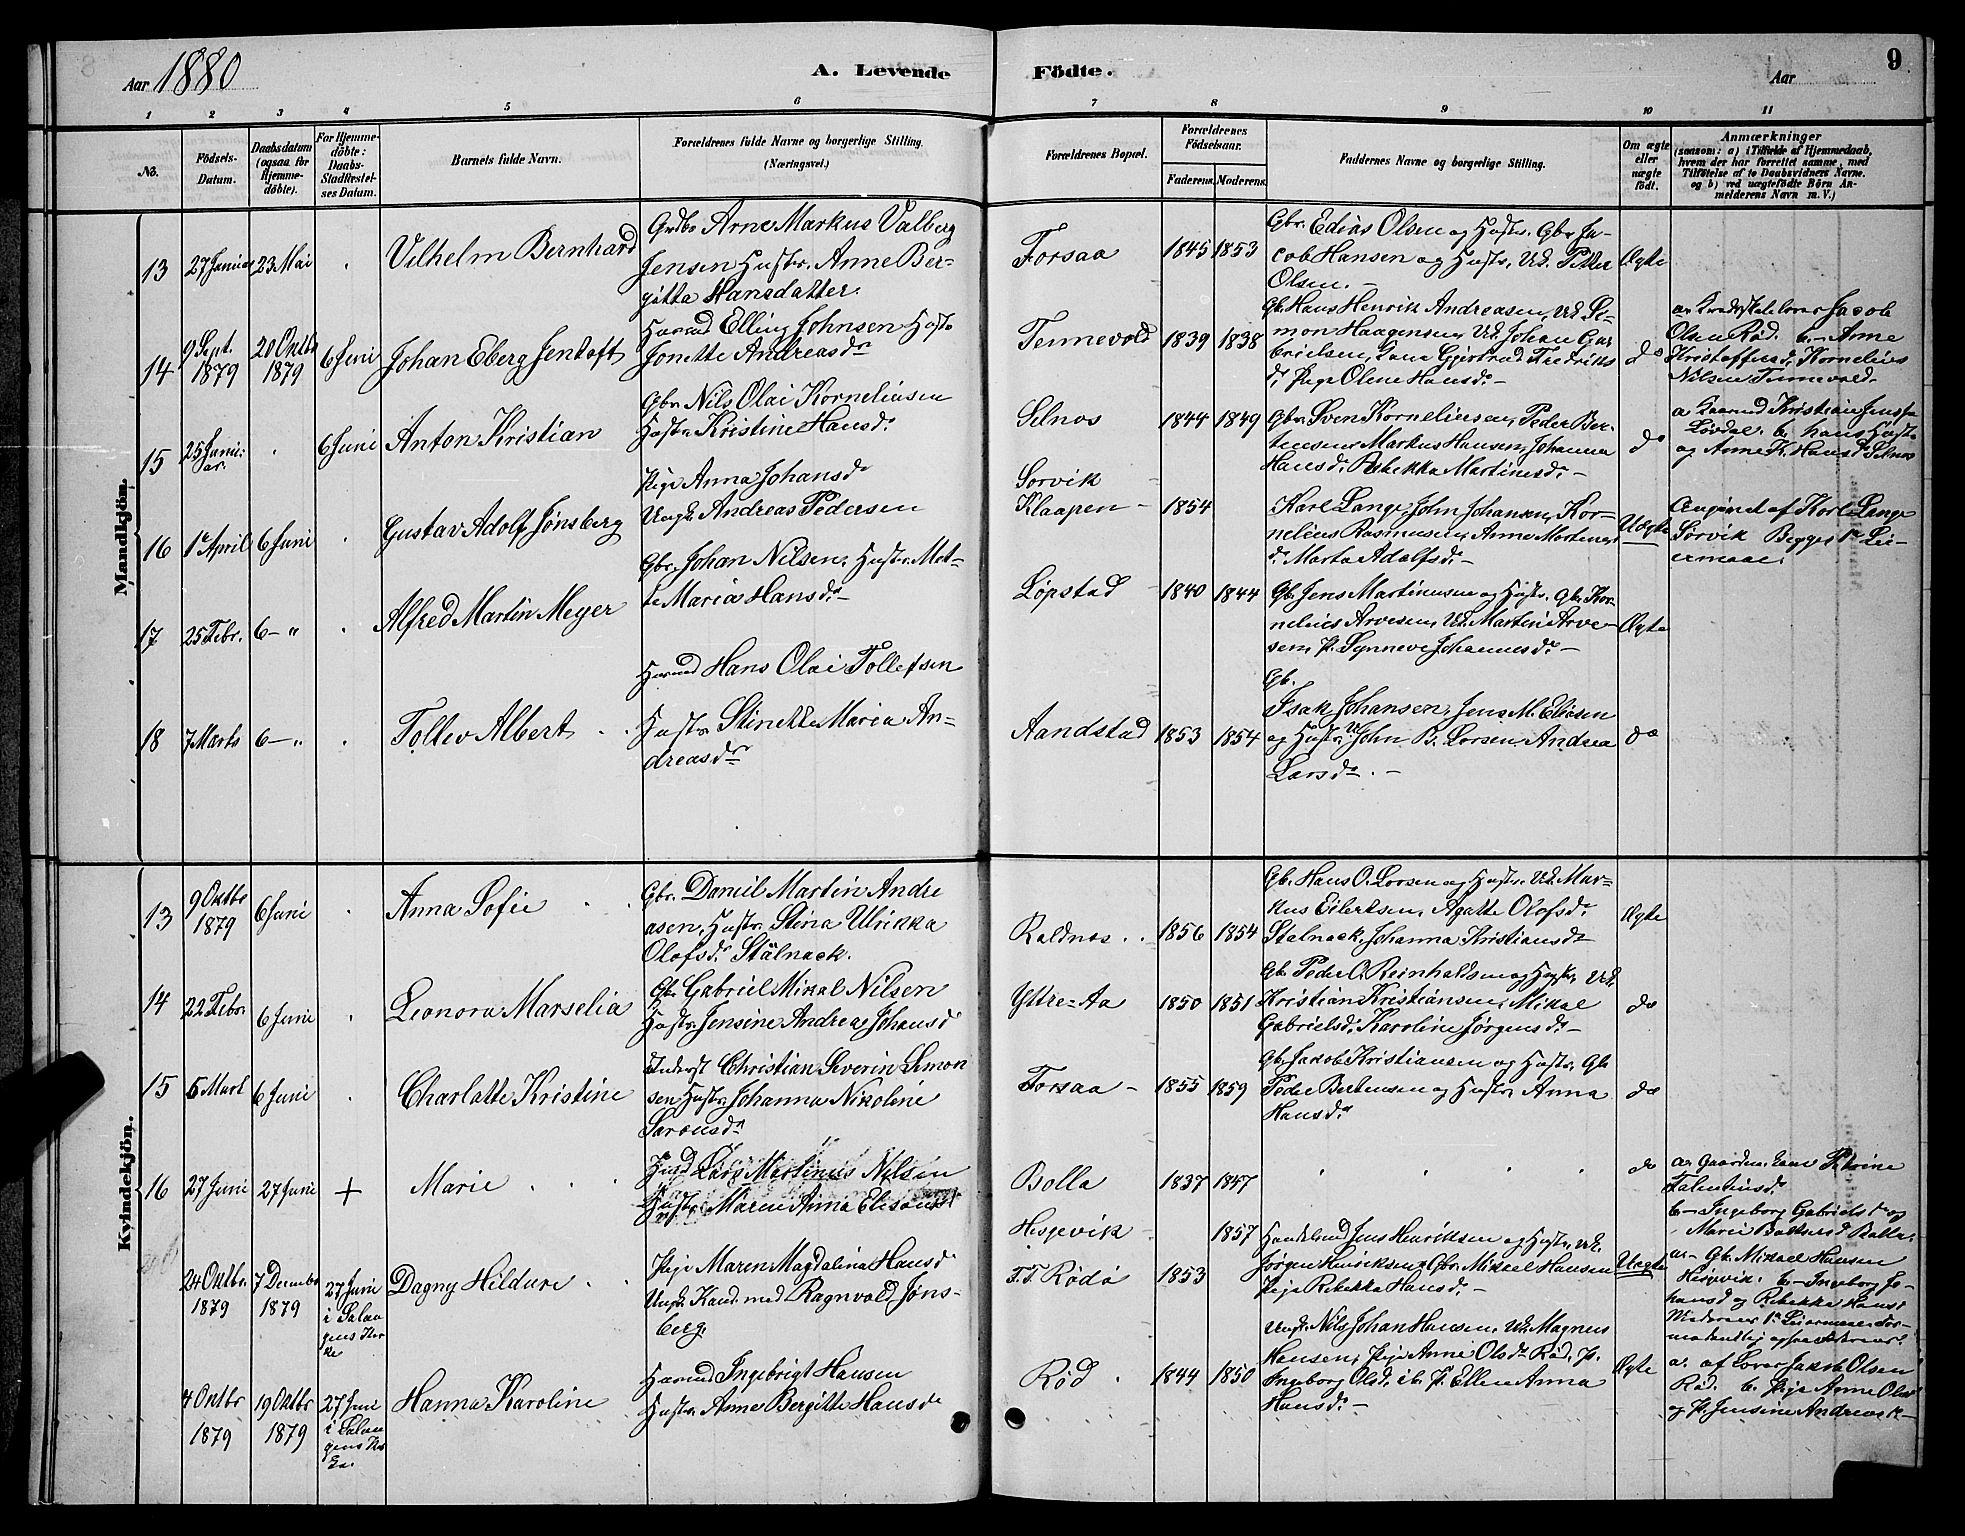 Aar 1880
A. Levende Födte.
Aar
9
1 2 3 4 5 6 7 8 9 10 11
No.
Födsels-Datum.
Daabsdatum (ogsaa for Hjemme-döbte).
For Hjemme-döbte: Daabs-Stadfæstel-ses Datum.
Barnets fulde Navn.
Forældrenes fulde Navne og borgerlige Stilling. (Næringsvei.)
Forældrenes Bopæl.
Forældrenes Födselsaar.
Faderens. Moderens.
Faddernes Navne og borgerlige Stilling.
Om ægte eller uægte födt.
Anmærkninger
(saasom: a) i Tilfælde af Hjemmedaab,
hvem der har forrettet samme, med
Tilföielse af to Daabsvidners Navne.
og b) ved uægtefödte Börn An-
melderens Navn m. V.)
Mandkjön.
13 27 Januar 23 Mai Vilhelm Bernhard
Grdbr Arne Markus Valberg
Jensen Hustr. Anne Ber-
gitta Hansdatter.
Forsaa 1845 1853
Gbr. Edias Olsen og Hustr. Gbr. Ja-
cob Hansen og Hustr, Uk. Petter
Olsen. -
Ægte
14 9 Sept. 1879 20 Ontbr 1879 6 Juni Johan Eberg Jentoft
Husmd Elling Johnsen Hustr
Jonette Andreasdr
Tennevold 1839 1838
Gb. Hans Henrik Andreasen, Uk. Si-
mon Haagensen, Uk. Johan Gab-
rielsen, Lana Gjertrud Fredriks
d, Pige Olene Hansd. -
do
Jacob
Olsen Röd. b- Anne
Kristoffersd, Kornelius
Nilsen Tennevold.
15 25 Januar. 6 Juni Anton Kristian
Gbr. Nils Olai Korneliusen
Hustr. Kristine Hansdr
Selnos 1844 1849
Gbr. Sven Korneliusen, Peder Ber-
tensen, Markus Hansen, Johanna
Hansd. Rebekka Martinesd. -
do
a Kristian Jenssen
Lövdal b. hans Hustr.
og Anne K. Hansd Selnos
16 1e April 6 Juni Gustav Adolf Jönsberg
Pige Anna Johansdr
Ungk. Andreas Pedersen
Sorvik
Klaapen - 1854
Karl Lange, John Johansen, Kor-
nelius Rasmussen, Anne Martines
d. Marta Adolfsd. -
Uægte
Angivet af Karl Lange
Sörvik Begges 1e Lei-
ermaal.
17 25 Febr. 6 - " Alfred Martin Meyer
Gbr. Johan Nilsen, Hustr. Met-
te Maria Hansd. -
Löpstad 1840 1844
Gb. Jens Martinusen og Hustr. Gb. Kor-
nelius Arvesen, Uk. Martin Arve-
sen, P. Synneve Johannesd. -
Ægte
18 7 Marts 6 - " Tollev Albert
Husmd Hans Olai Tollefsen
Hustr. Stinette Maria An-
dreasdr
Aandstad 1853 1854
Gb.
Isak Johansen, Jens M. Eliasen
og Hustr. Uk John B. Larsen Andrea
Larsdr. -
do
Kvindekjön.
13 9 Oktbr 1879 6 Juni Anna Sofie
Gbr. Daniel Martin Andre
asen, Hustr. Stina Ulrikka
Olofsd. Stålnack.
Raldnos 1856 1854
Gb. Hans O. Larsen og Hustr. Uk. Mar-
kus Eilertsen, Agatte Olofsd.
Stalnack, Johanna Kristiansd
Ægte
14 22 Febr. 6 Juni Leonora Marselia
Gbr. Gabriel Mikal Nilsen
Hustr. Jensine Andrea Johansd
Yttre-Aa 1850 1851
Gb. Peder O. Reinholdsen og Hustr. Uk.
Kristian Kristiansen, Mikal
Gabrielsd. Karoline Jörgensd. -
do
15 5 Mart 6 Juni Charlotte Kristine
Inderst Christian Severin Simon
sen Hustr. Johanna Nikoline
Sarensdr
Forsaa - 1855 1859
Gb. Jakob Kristiansen og Hustr. Gb
Peder Berthensen og Hustr. Anna
Hansdr
do
16 27 Juni 27 Juni + Marie
Husmd Lars Martinus Nilsen
Hustr. Maren Anna
Bolla 1837 1847
do
a. Petrine
Falentinsd.
b- Ingeborg Gabrielsd og
Marie Boltersd Bolla.
24 Oktbr. 1879 7 Decembr 1879 27 Juni i Salan gens Kir ke Dagny Hildure
Pige Maren Magdalina Hansd
Ungk. Kand. med Ragnvald Jöns-
berg.
Hesjevik - 1857
T.T. Rödö 1853
Handelsmd Jens Henriksen og Hustr. Uk.
Jörgen Henriksen, Gbr. Mikael Hansen
Pige Rebekka Hansd. -
Uægte
a - Gb. Mikael Hansen
Hesjevik. b - Ingeborg Jo-
hansd og Rebekka Hansd
Moderens 1e Leiermaal
4 Ontbr 1879 19 Oktbr 1879 27 Juni i Salan gens Kir ke. Hanna Karoline
Husmd Ingebrigt Hansen
Hustr. Anne Bergitte Hansdr
Röd 1844 1850
Ungk. Nils Johan Hansen, Uk. Magnus
Hansen, Pige Anne Olsdr Röd, P.
Ingeborg Olsd. ib. P. Ellen Anna
Hansd. -
Ægte
a. af Jakob Olsen
Röd. b. Pige Anne Olsd
og P. Jensine